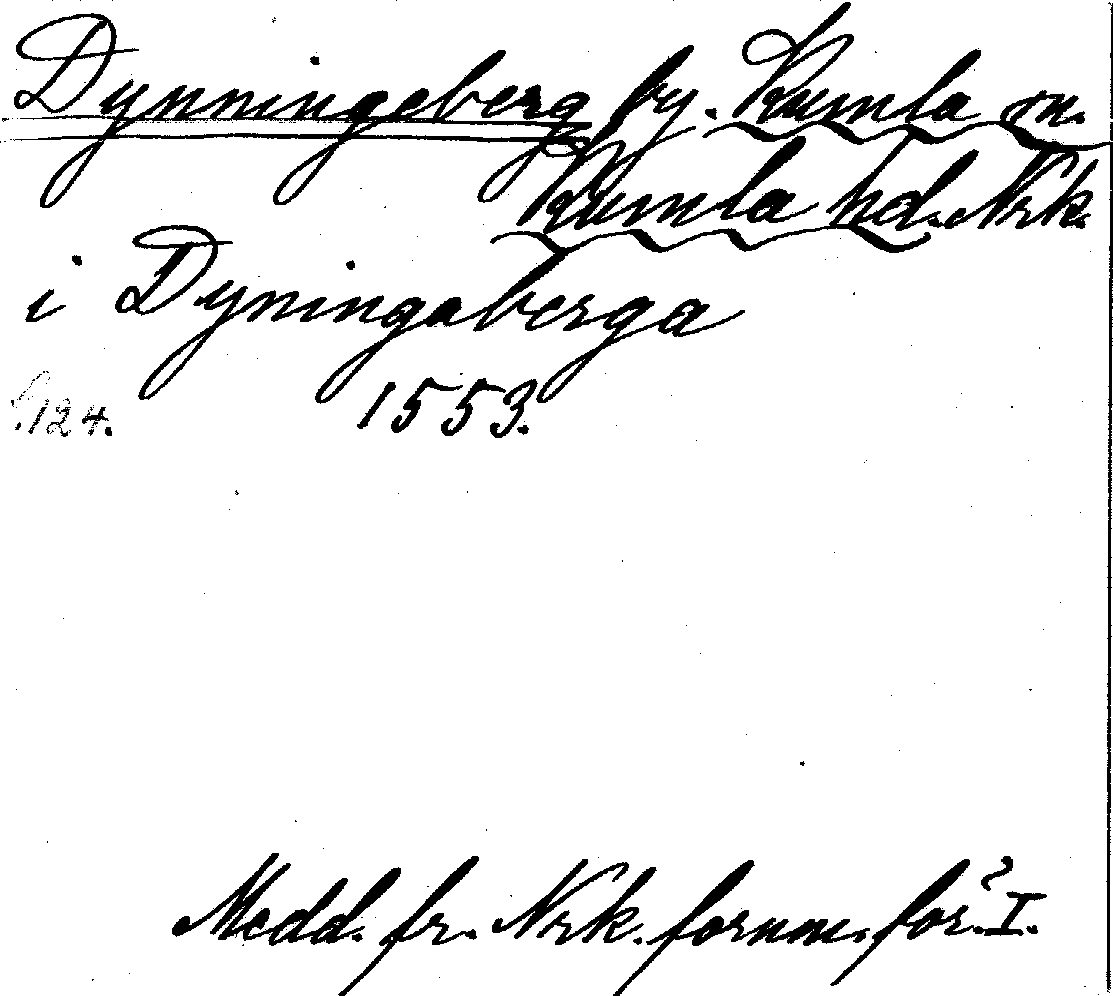 Dynningeberg by. Kumla sn.
Kumla hd. Nrk.
i Dyningaberga
124. 1553.
Medd. fr. Nrk. fornm. för. I.